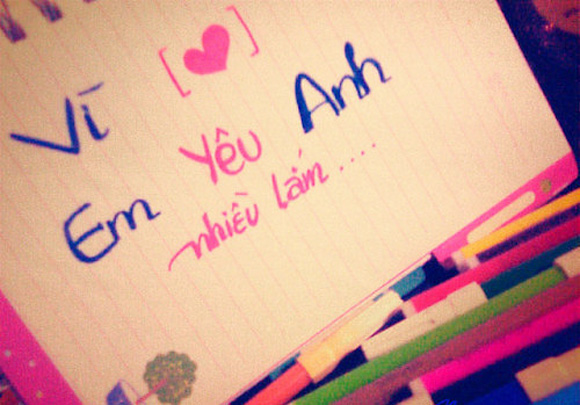 Vì [♥]
Em Yêu Anh
nhiều lắm ....